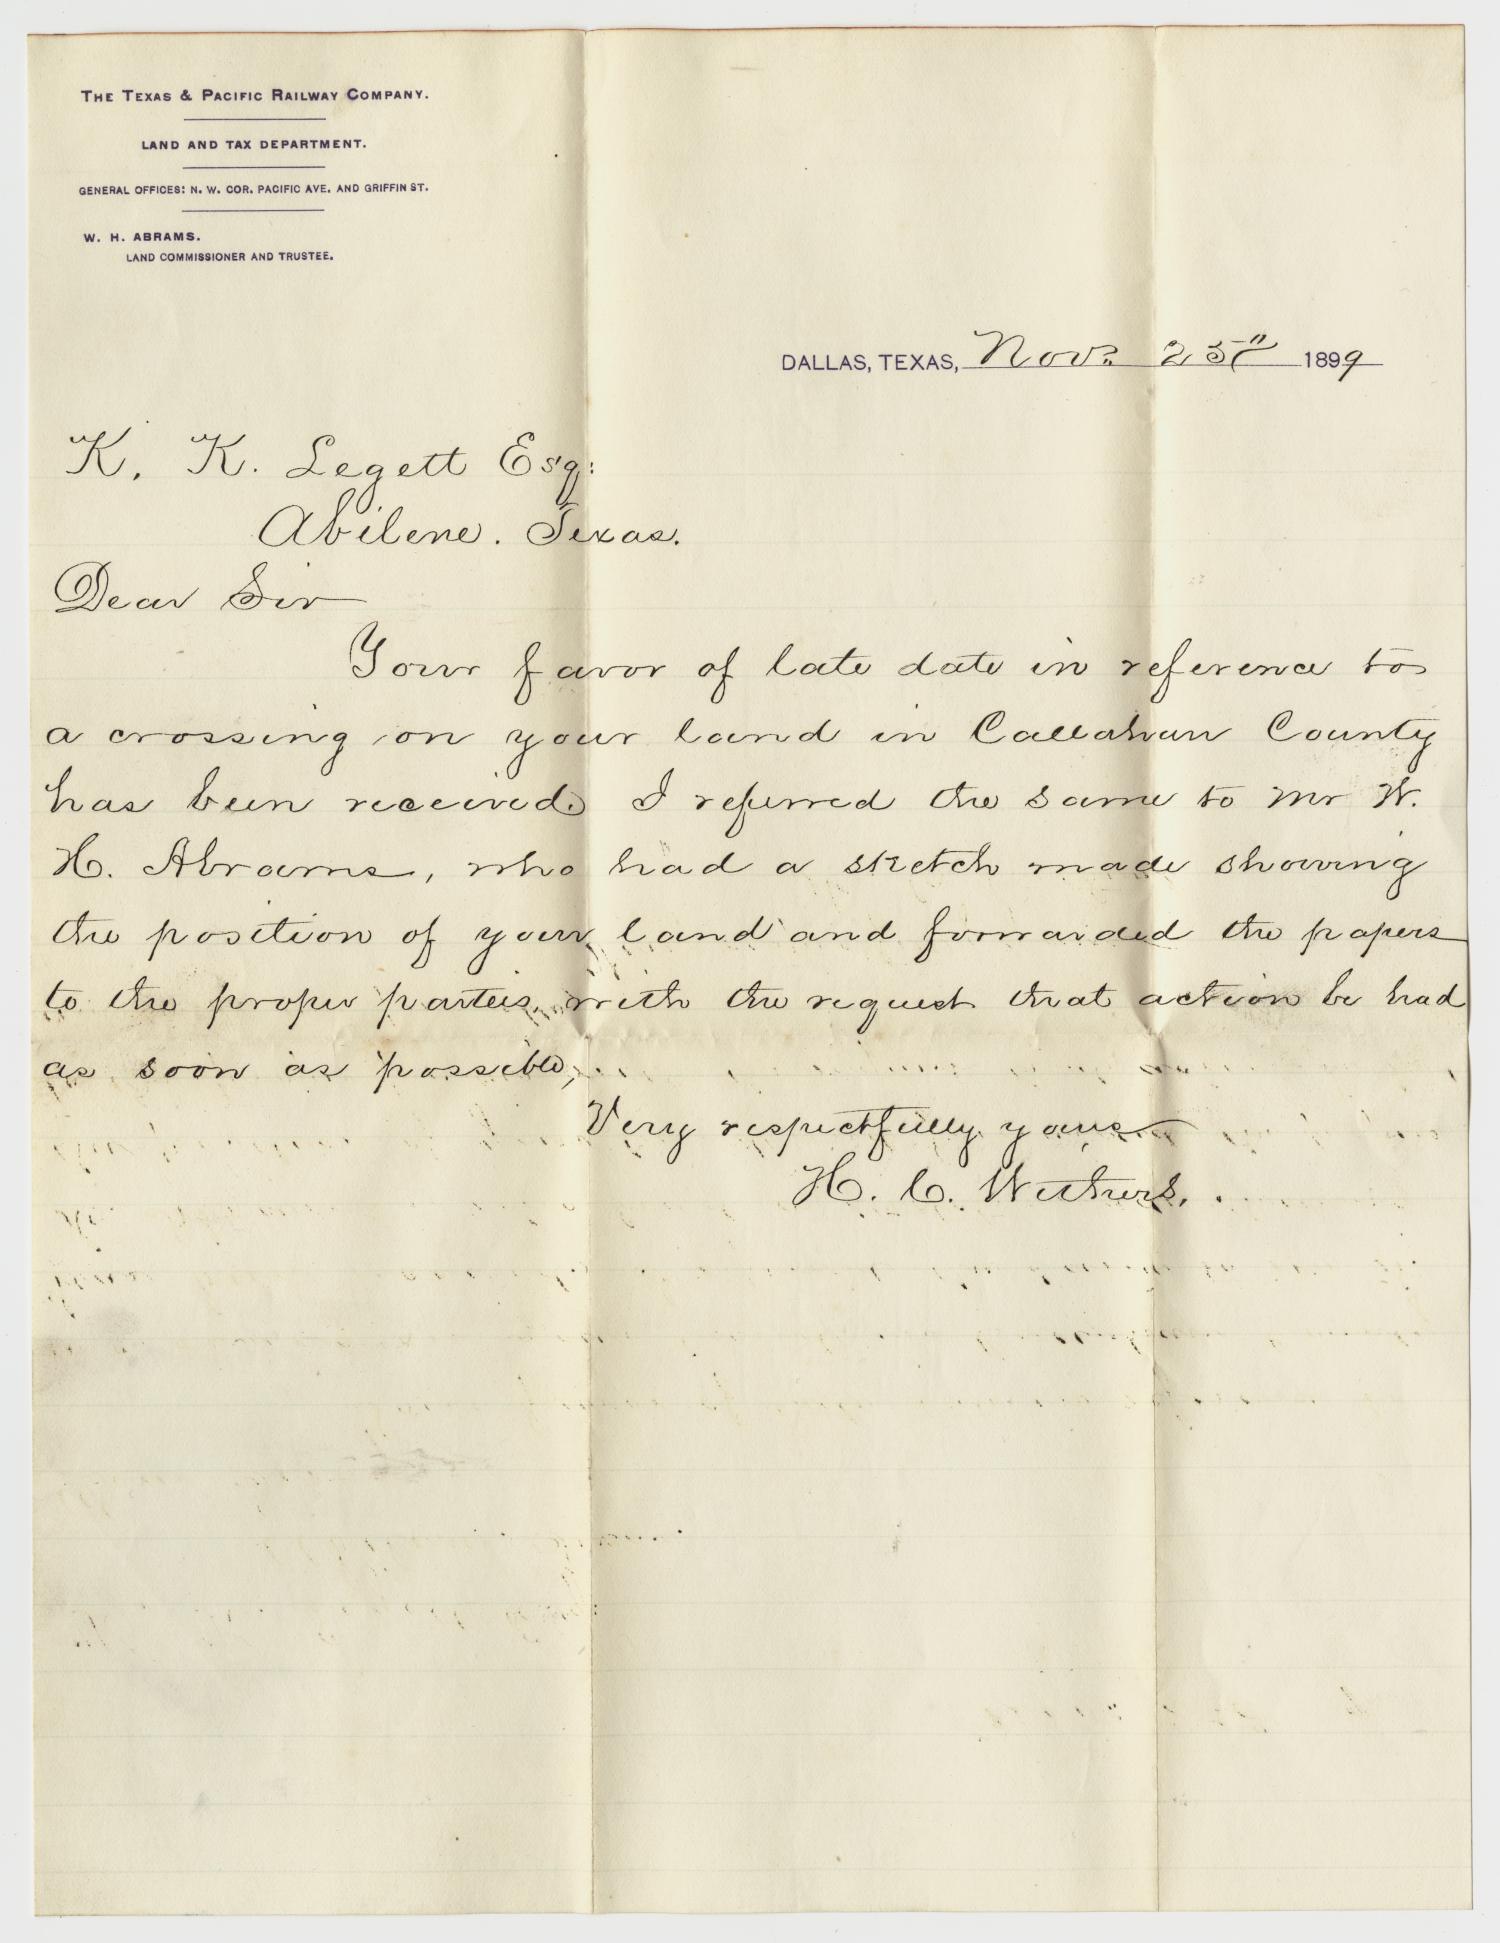 THE TEXAS & PACIFIC RAILWAY COMPANY.
LAND AND TAX DEPARTMENT.
GENERAL OFFICES: N. W. COR. PACIFIC AVE. AND GRIFFIN ST.
W. H. ABRAMS.
LAND COMMISSIONER AND TRUSTEE.
DALLAS, TEXAS, Nov. 25th 1899
K. K. Legett Esq:
Abilene. Texas.
Dear Sir
Your favor of late date in reference to
a crossing on your land in Callahan County
has been received. I referred the same to Mr W.
H. Abrams, who had a sketch made showing
the position of your land and forwarded the papers
to the proper parties, with the request that action be had
as soon as possible,
Very respectfully yours
H. C. Withers.